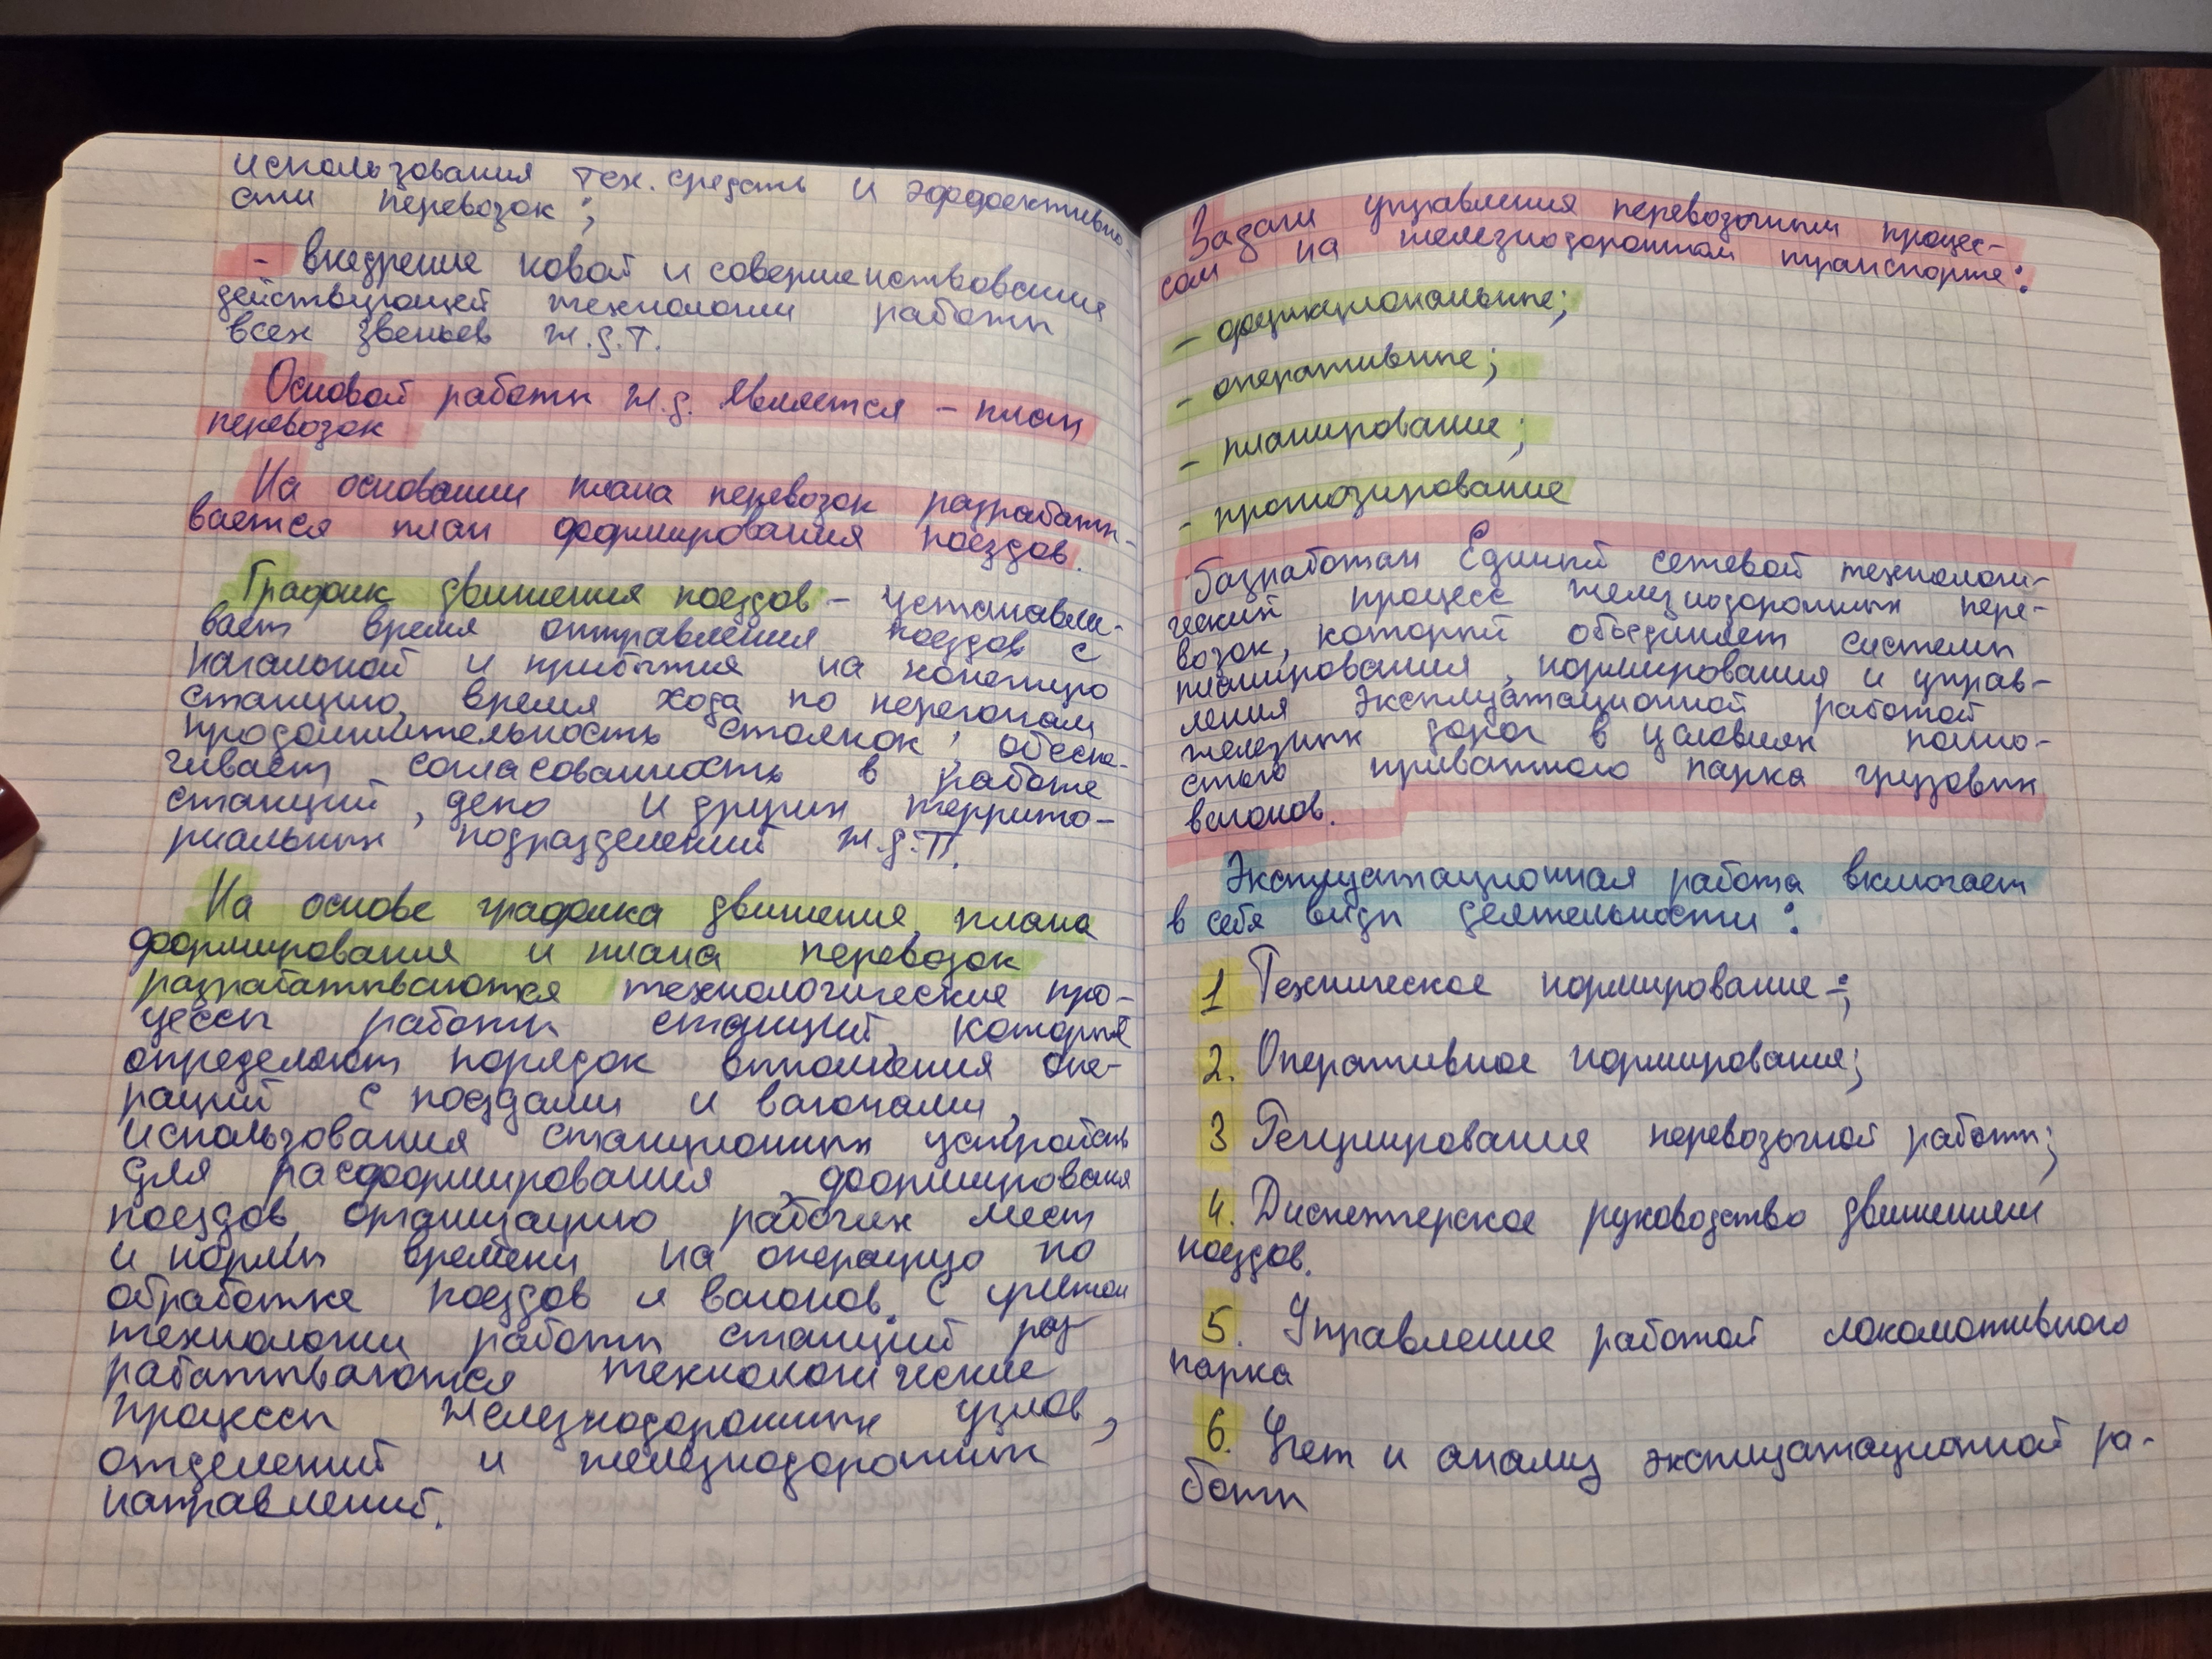 использования тех. средств и эффективно-
сти перевозок;
- внедрение новой и совершенствование
действующей технологии работы
всех звеньев ж.д.т.
Основой работы ж.д. является – план
перевозок
На основании плана перевозок разрабаты-
вается план формирования поездов.
График движения поездов – устанавли-
вает время отправления поездов с
начальной и прибытия на конечную
станцию, время хода по перегонам,
продолжительность стоянок, обеспе-
чивает согласованность в работе
станций, депо и других террито-
риальных подразделений ж.д.т.
На основе графика движения, плана
формирования и плана перевозок
разрабатываются технологические про-
цессы работы станций, который
определяют порядок выполнения опе-
раций с поездами и вагонами,
использования станционных устройств
для расформирования, формирования
поездов, организацию рабочих мест
и нормы времени на операцию по
обработке поездов и вагонов. С учётом
технологии работы станций раз-
рабатываются технологические
процессы железнодорожных узлов,
отделений и железнодорожных
направлений.
Задачи управления перевозочным процес-
сом на железнодорожном транспорте:
- функциональные;
- оперативные;
- планирование;
- прогнозирование
Разработан Единый сетевой технологи-
ческий процесс железнодорожных пере-
возок, который объединяет системы
планирования, нормирования и управ-
ления эксплуатационной работой
железных дорог в условиях полно-
стью приватного парка грузовых
вагонов.
Эксплуатационная работа включает
в себя виды деятельности:
1 Техническое нормирование;
2. Оперативное нормирование;
3 Регулирование перевозочной работы;
4. Диспетчерское руководство движением
поездов.
5. Управление работой локомотивного
парка
6. Учет и анализ эксплуатационной ра-
боты